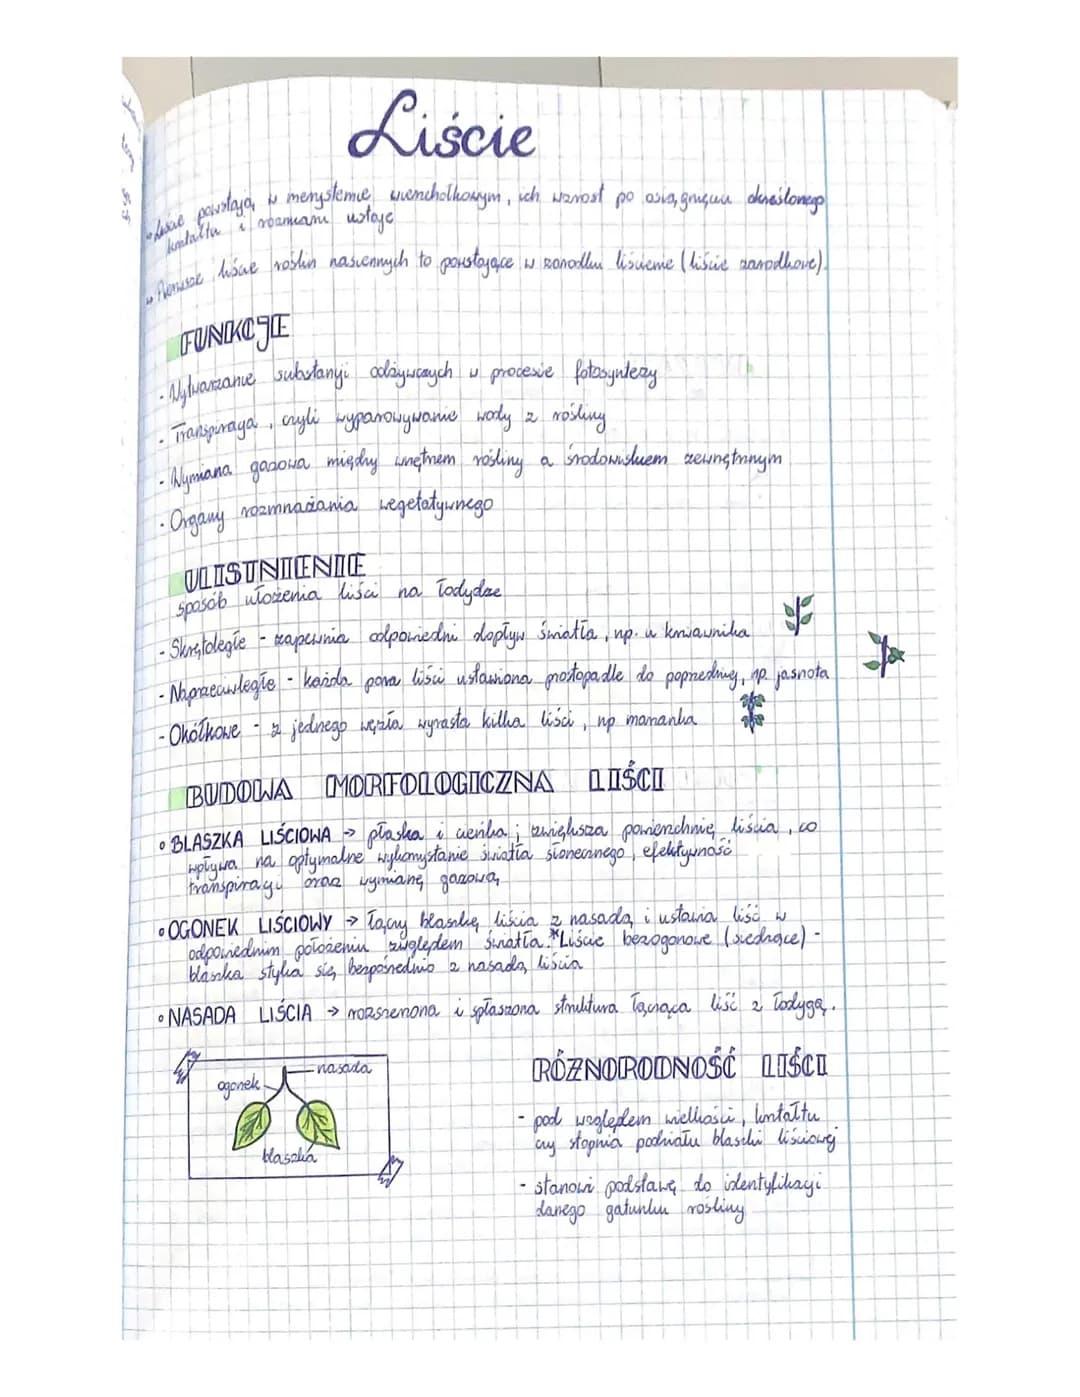 Liście
→ Liście powstają w merystemie wierzchołkowym, ich wzrost po osiągnięciu określonego
kształtu i rozmiaru ustaje
→ Pierwsze liście roślin nasiennych to powstające w zarodku liścienie (liście zarodkowe).
FUNKCJE
- Wytwarzanie substancji odżywczych w procesie fotosyntezy
- Transpiracja, czyli wyparowywanie wody z rośliny
- Wymiana gazowa między wnętrzem rośliny a środowiskiem zewnętrznym
- Organy rozmnażania wegetatywnego
ULISTNIENIE
sposób ułożenia liści na łodydze
- Skrętoległe - zapewnia odpowiedni dopływ światła, np. u krwawnika
- Naprzeciwległe - każda para liści ustawiona prostopadle do poprzedniej, np. jasnota
- Okółkowe - z jednego węzła wyrasta kilka liści, np marzanka
BUDOWA MORFOLOGICZNA LIŚCI
• BLASZKA LIŚCIOWA → płaska i cienka; zwiększa powierzchnię liścia, co
wpływa na optymalne wykorzystanie światła słonecznego, efektywność
transpiracji oraz wymianę gazową
• OGONEK LIŚCIOWY → łączy blaszkę liścia z nasadą i ustawia liść w
odpowiednim położeniu względem światła.*Liście bezogonowe (siedzące) -
blaszka styka się bezpośrednio z nasadą liścia
• NASADA LIŚCIA → rozszerzona i spłaszczona struktura łącząca liść z łodygą.
nasada
ogonek
blaszka
RÓŻNORODNOŚĆ LIŚCI
- pod względem wielkości, kształtu
czy stopnia podziału blaszki liściowej
- stanowi podstawę do identyfikacji
danego gatunku rośliny